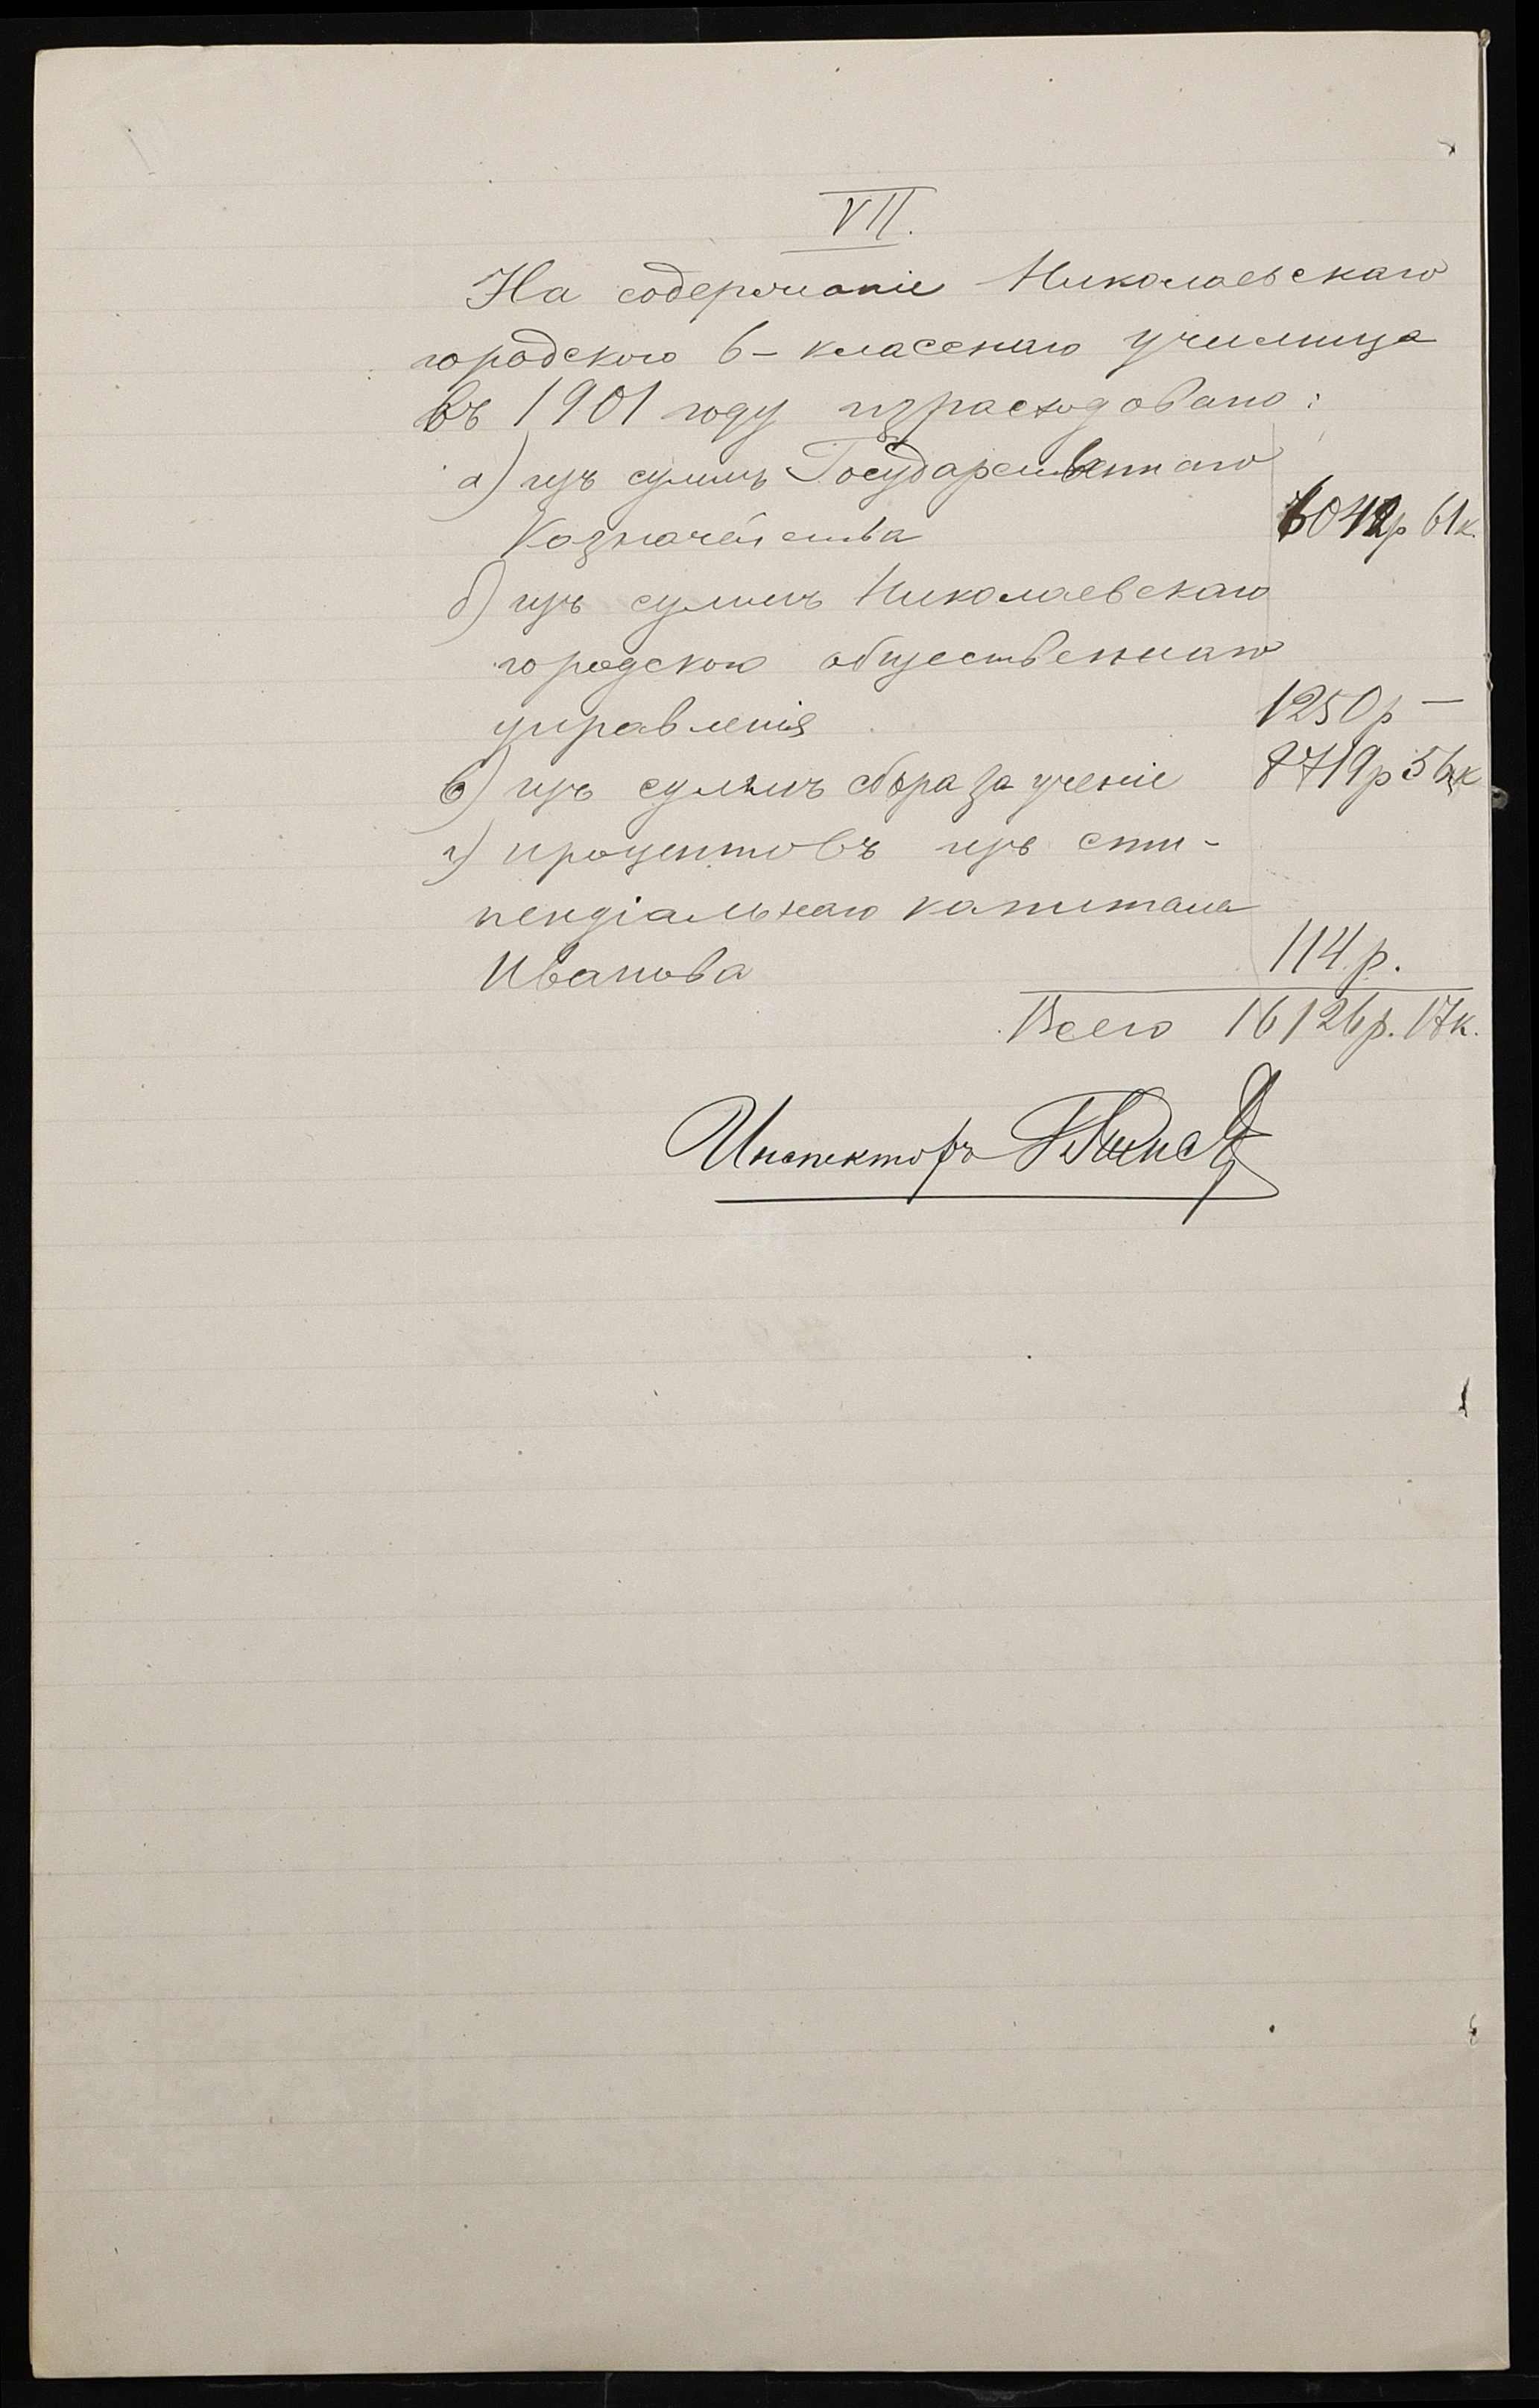 VII.
На содержаніе Николаевскаго
городского 6-класснаго училища
въ 1901 году израсходовано:
а) изъ суммъ Государственнаго
Казначейства 6042р 61к.
б) изъ суммъ Николаевскаго
городского общественнаго
управленія 1250р —
в) изъ суммъ сбора за ученіе 8719р 56к
г) процентовъ изъ сти-
пендіальнаго капитала
Иванова 114 р.
Всего 16126р. 17к.
Инспекторъ